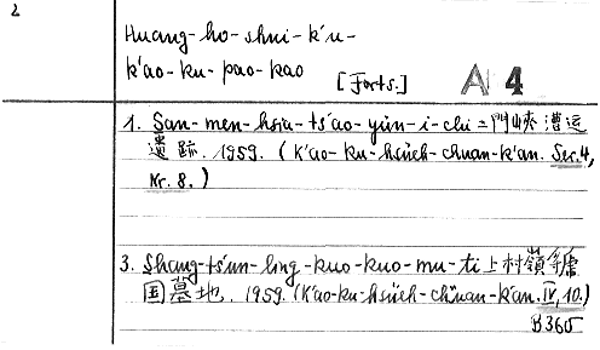 2
Huang-ho-shui-k'u-
k'ao-ku-pao-kao [Forts.] A 4
1. San-men-hsia-ts'ao-yün-i-chi 三門峽漕运
遺跡. 1959. (K'ao-ku-hsüeh-chuan-k'an. Ser.4,
Nr. 8.)
3. Shang-ts'un-ling-kuo-kuo-mu-ti 上村嶺虢
国墓地. 1959. (K'ao-ku-hsüeh-chuan-k'an. IV, 10.)
B 365